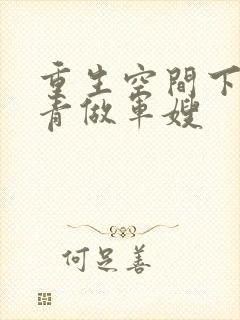 重生空間下
青做軍嫂
何足善